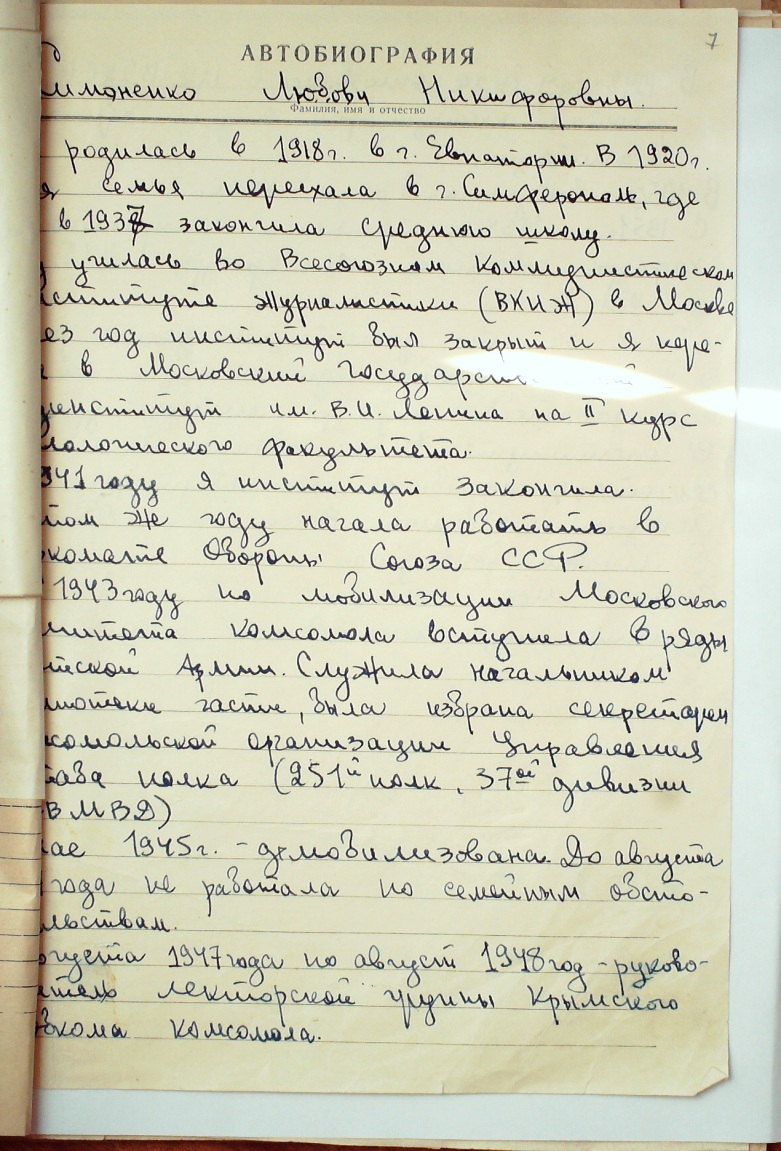 7
АВТОБИОГРАФИЯ
имоненко Любови Никифоровны.
Фамилия, имя и отчество
родилась в 1918г. в г. Евпатории. В 1920г.
я семья переехала в г. Симферополь, где
в 1937 закончила среднюю школу.
училась во Всесоюзном Коммунистическом
ституте журналистики (ВКИЖ) в Москве
ез год институт был закрыт и я пере-
в Московский Государств
институт им. В.И. Ленина на II курс
логического факультета.
941 году я институт закончила.
том же году начала работать в
комате Обороны Союза ССР.
1943 году по мобилизации Московского
митета комсомола вступила в ряды
тской Армии. Служила начальником
иотеки части, была избрана секретарем
сомольской организации Управления
таба полка (251й полк, 37ой дивизии
В МВД)
ае 1945г. - демобилизована. До августа
года не работала по семейным обсто-
льствам.
вгуста 1947 года по август 1948 год - руково-
итель лекторской группы Крымского
бкома комсомола.